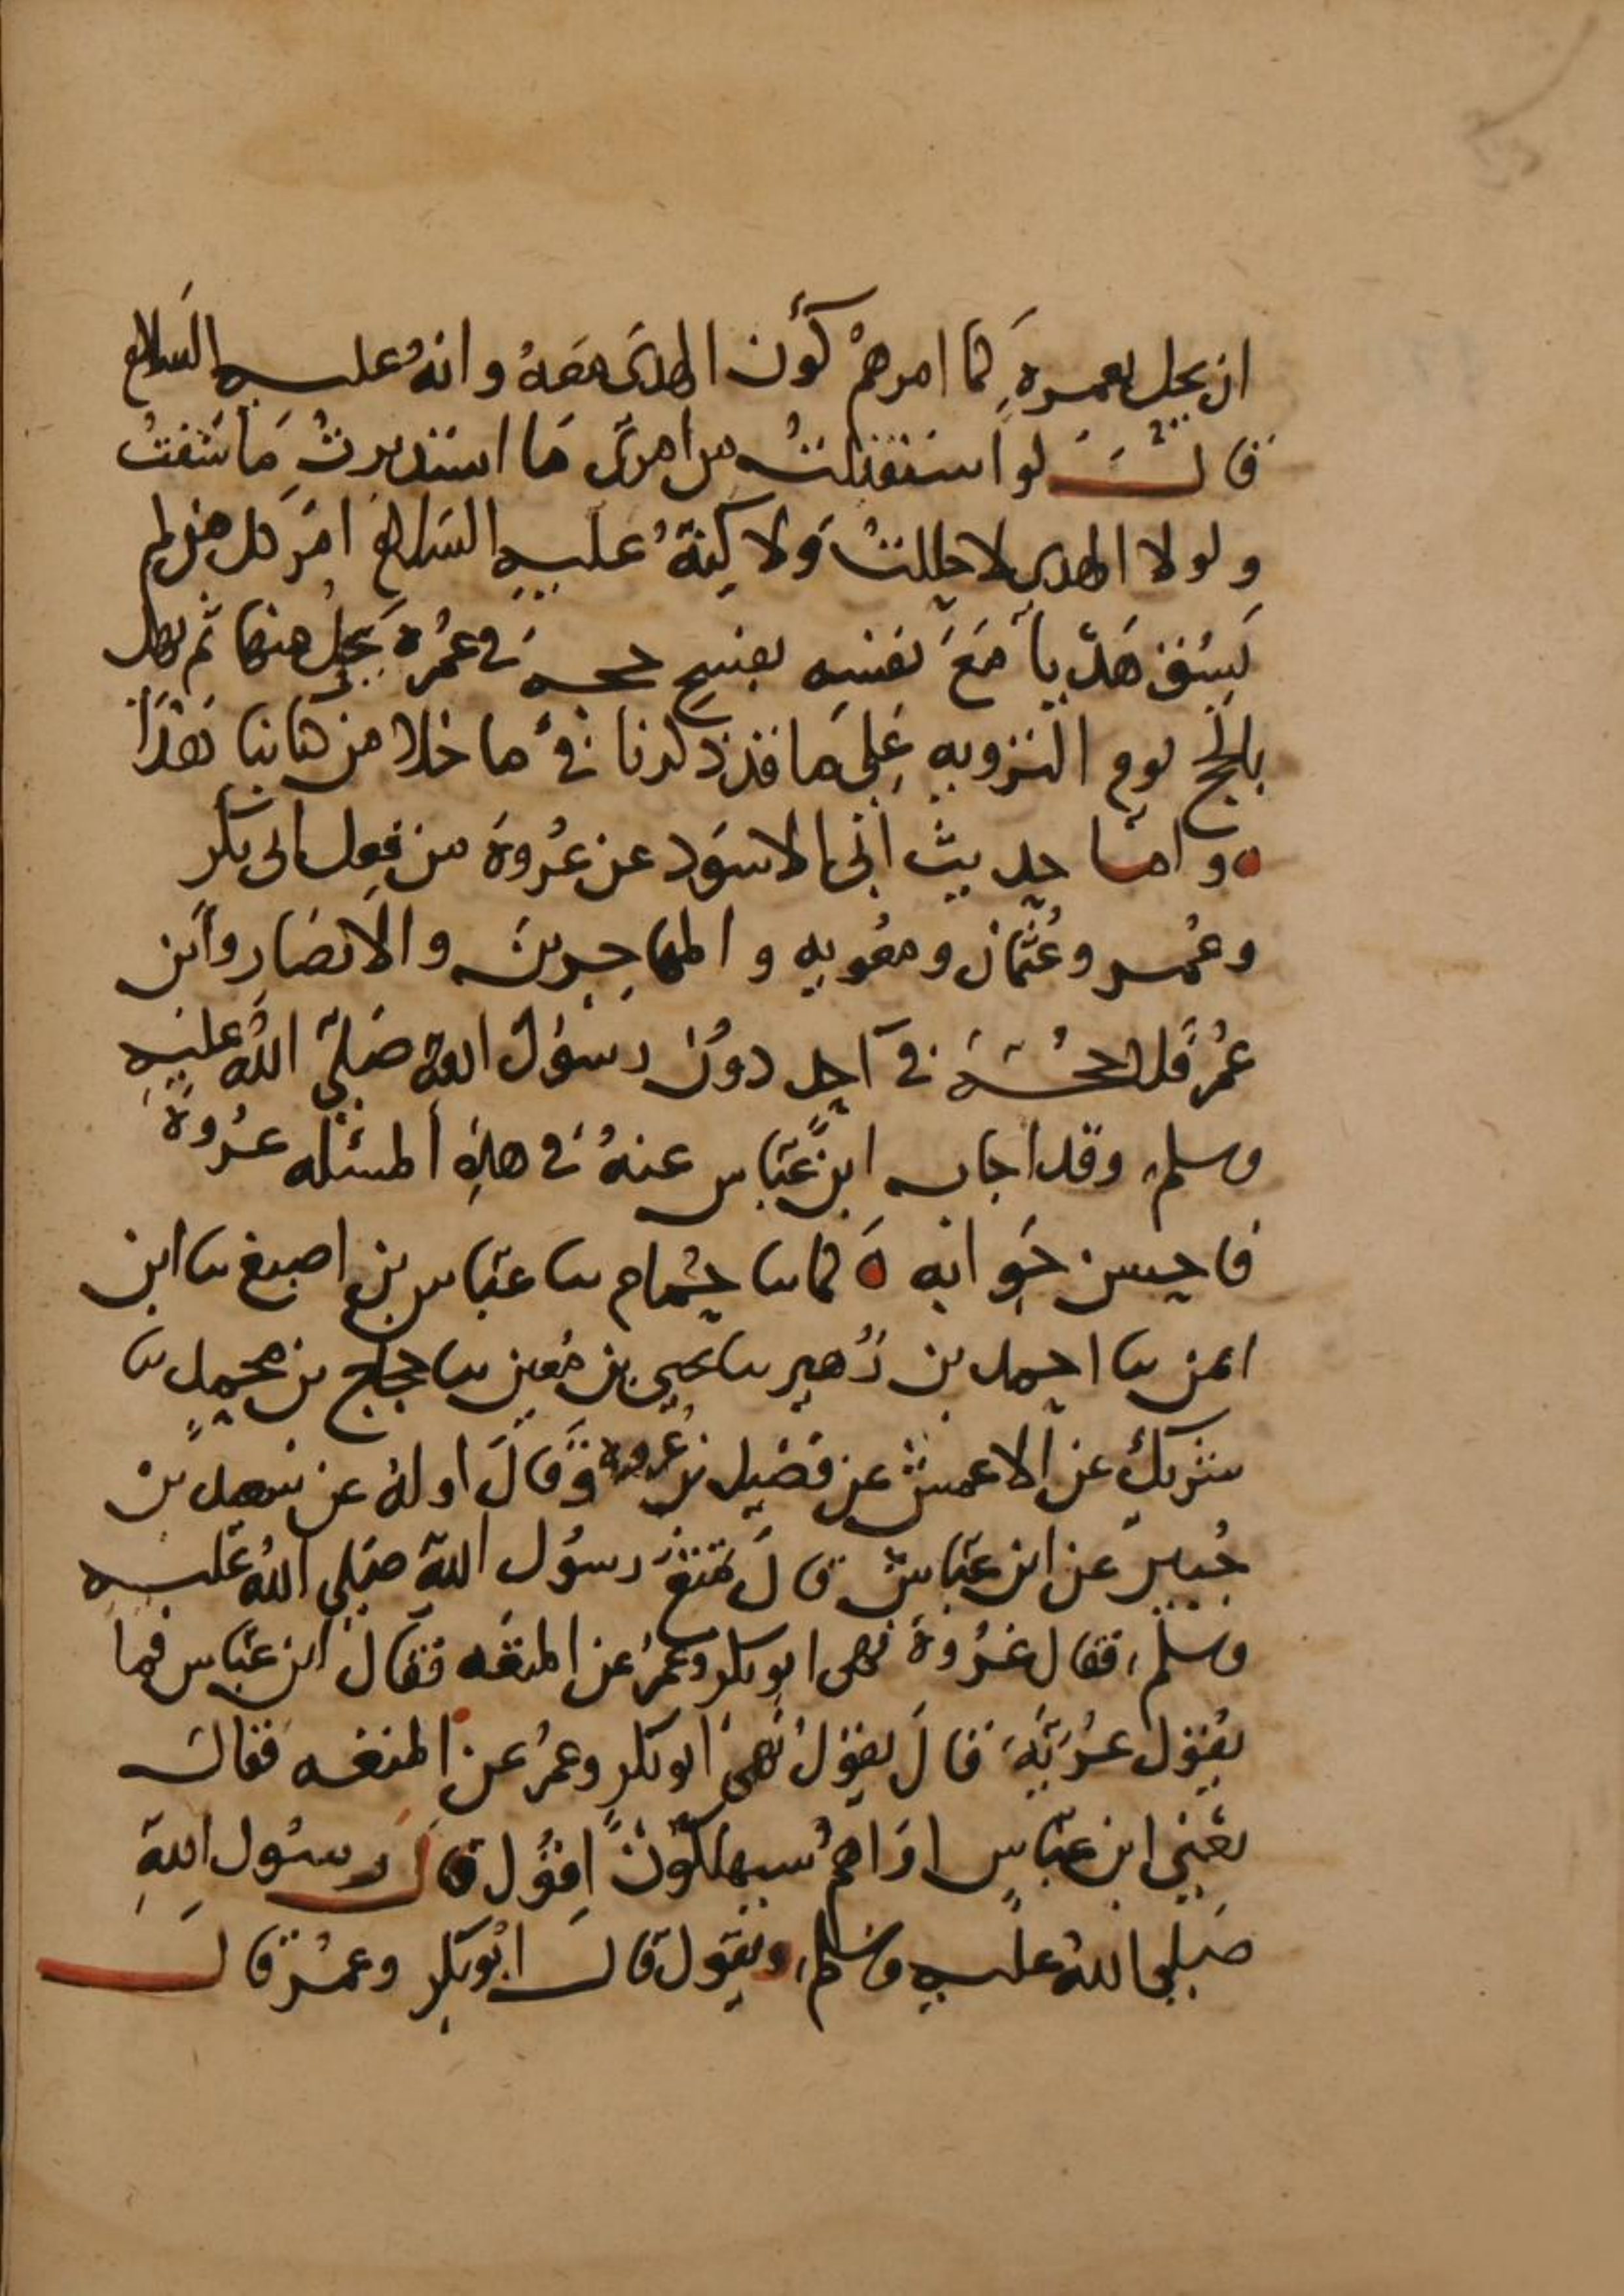 ان يحل بعمرة كما امرهم كون الهدى معه وانه عليه السلام
قال لو استقبلت من امرى ما استدبرت ما سقت
ولولا الهدى لاحللت ولاكنه عليه السلام امر كل من لم
يسق هديا مع نفسه بفسخ حجه في عمرة يحل منها ثم يهل
بالحج يوم التروية على ما قد ذكرنا في ما خلا من كتابنا هذا
واما حديث ابى الاسود عن عروة من فعل ابى بكر
وعمر وعثمان ومعويه والمهاجرين والانصار وابن
عمر فلا حجة في احد دون رسول الله صلى الله عليه
وسلم وقد اجاب ابن عباس عنه في هذه المسئله عروة
فاحسن جوابه ه كما ثنا حمام ثنا عباس بن اصبغ ثنا ابن
ايمن ثنا احمد بن زهير ثنا يحيى بن معين ثنا حجاج بن محمد ثنا
شريك عن الاعمش عن فضيل بن عمرو وقال اوله عن سعيد بن
جبير عن ابن عباس قال تمتع رسول الله صلى الله عليه
وسلم فقال عروة نهى ابو بكر وعمر عن المتعه فقال ابن عباس فما
يقول عرية قال يقول نهى ابو بكر وعمر عن المتعه فقال
يعني ابن عباس اراهم سيهلكون اقول قال رسول الله
صلى الله عليه وسلم ويقول قال ابو بكر وعمر قال